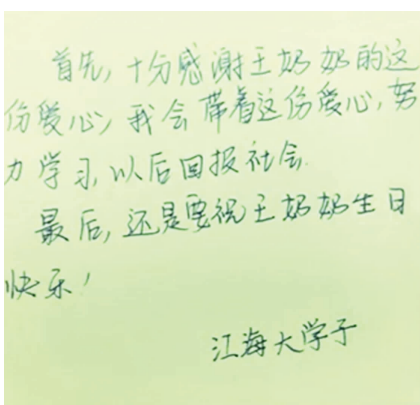 首先,十分感谢王奶奶的这
份爱心,我会带着这份爱心,努
力学习,以后回报社会.
最后,还是要祝王奶奶生日
快乐!
江海大学子